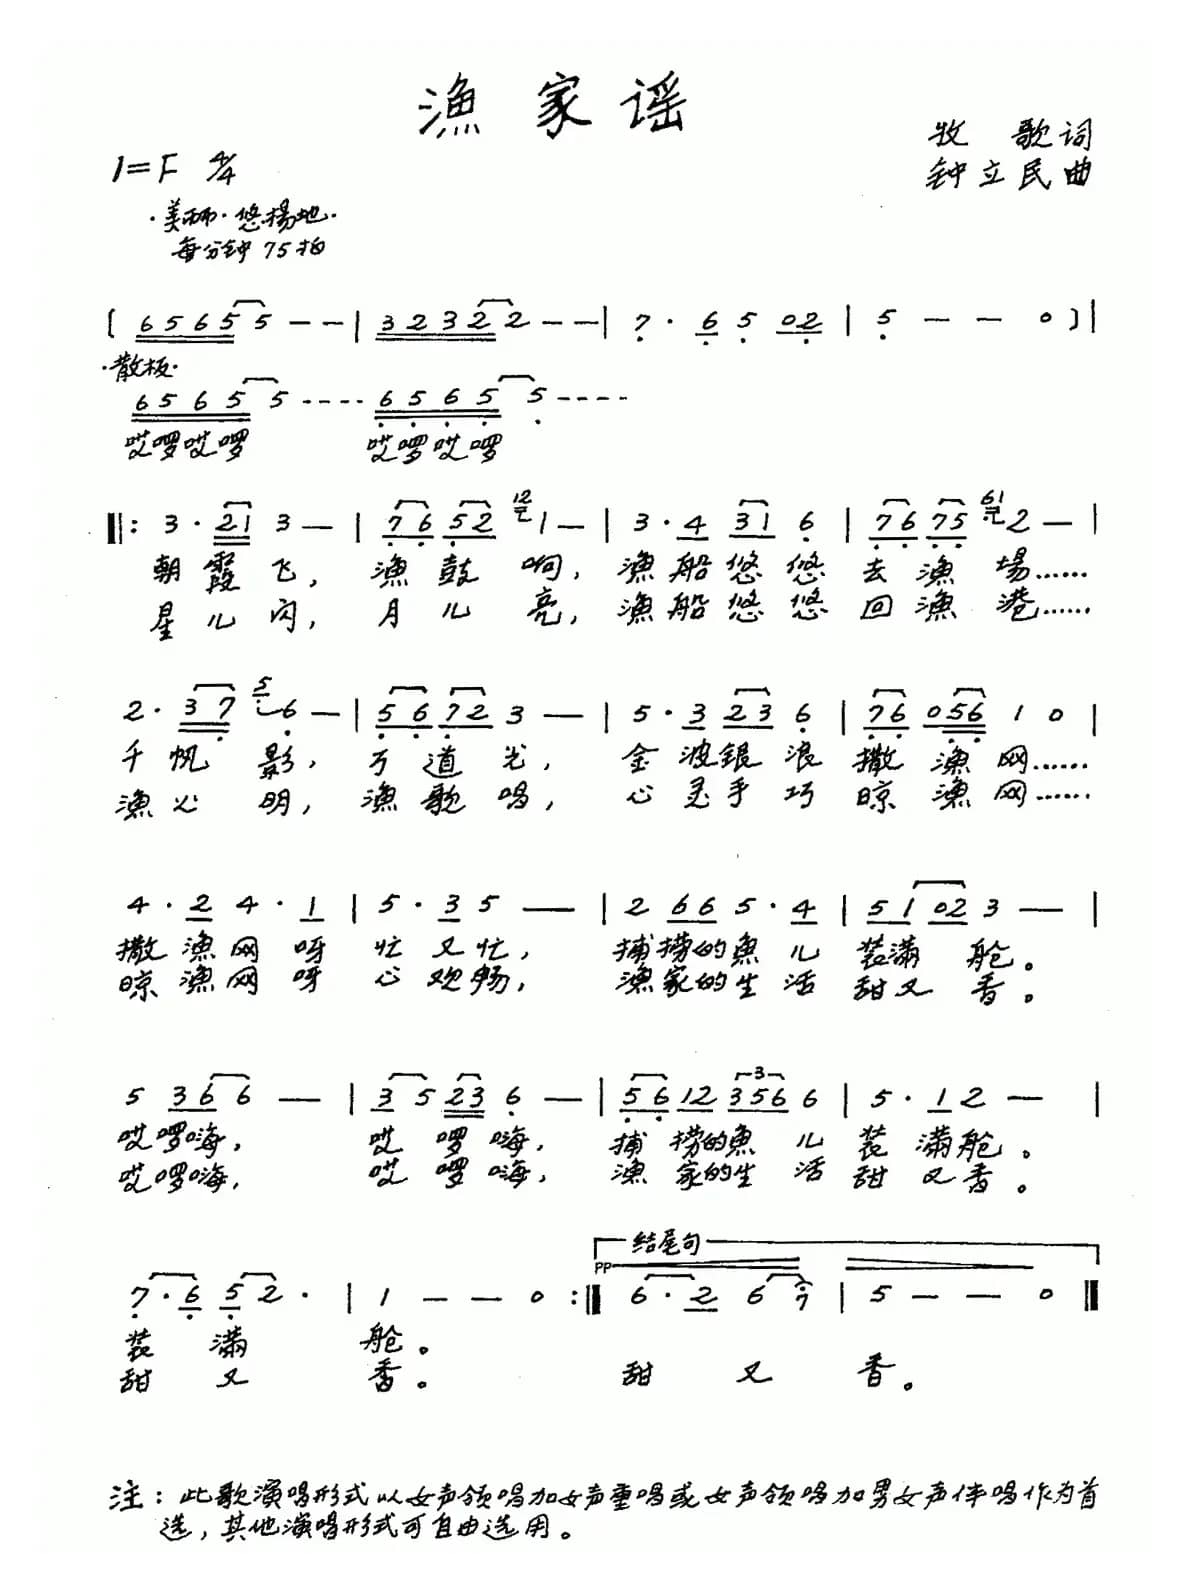 渔家谣
牧 歌词
钟立民曲
1=F 4/4
·美丽·悠揚地·
每分钟 75拍
( 6 5 6 5 5 - - | 3 2 3 2 2 - - | 7 · 6 5 0 2 | 5 - - 0 ) |
·散板·
6 5 6 5 5 - - - - 6 5 6 5 5 - - - -
哎啰哎啰 哎啰哎啰
‖: 3 · 2 1 3 - | 7 6 5 2 12 1 - | 3 · 4 3 1 6 | 7 6 7 5 61 2 - |
朝霞飞, 渔鼓响, 渔船悠悠去渔場……
星儿闪, 月儿亮, 渔船悠悠回渔港……
2 · 3 7 5 6 - | 5 6 7 2 3 - | 5 · 3 2 3 6 | 7 6 0 5 6 1 0 |
千帆影, 万道光, 金波銀浪撒渔网……
渔火明, 渔歌唱, 心灵手巧晾渔网……
4 · 2 4 · 1 | 5 · 3 5 - | 2 6 6 5 · 4 | 5 1 0 2 3 - |
撒渔网呀忙又忙, 捕捞的魚儿装满舱。
晾渔网呀心欢畅, 渔家的生活甜又香。
5 3 6 6 - | 3 5 2 3 6 - | 5 6 1 2 3 5 6 6 | 5 · 1 2 - |
3
哎啰嗨, 哎啰嗨, 捕捞的魚儿装满舱。
哎啰嗨, 哎啰嗨, 渔家的生活甜又香。
结尾句
pp
7 · 6 5 2 · | 1 - - 0 :‖ 6 · 2 6 7 | 5 - - 0 ‖
装满舱。
甜又香。 甜又香。
注：此歌演唱形式以女声领唱加女声重唱或女声领唱加男女声伴唱作为首
选，其他演唱形式可自由选用。